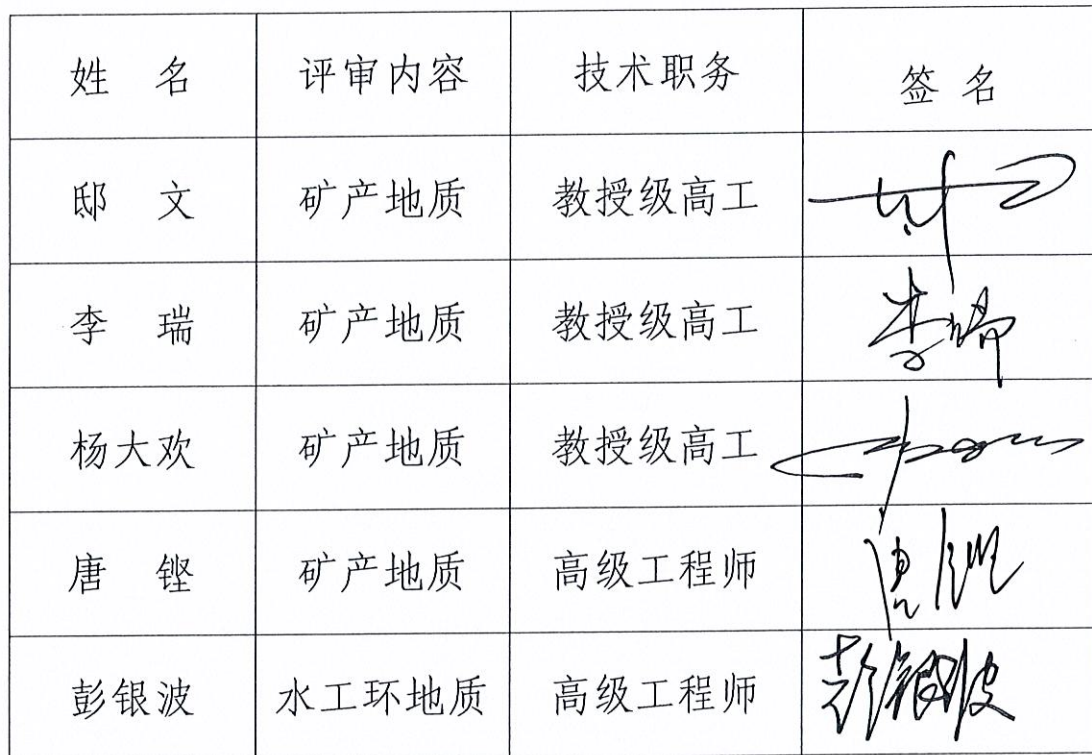 姓 名 评审内容 技术职务 签 名
邸 文 矿产地质 教授级高工
李 瑞 矿产地质 教授级高工 李瑞
杨大欢 矿产地质 教授级高工
唐 铿 矿产地质 高级工程师
彭银波 水工环地质 高级工程师 彭银波